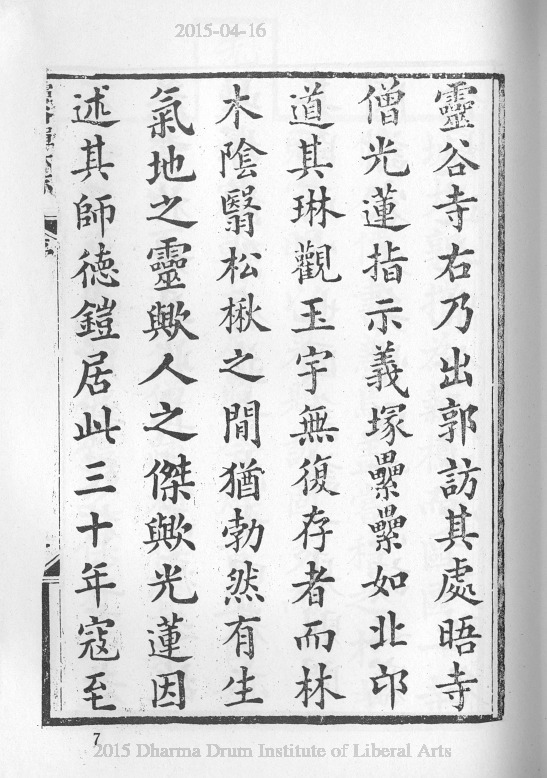 2015-04-16
靈谷寺右乃出郭訪其處晤寺
僧光蓮指示義塚纍纍如北邙
道其琳觀玉宇無復存者而林
木陰翳松楸之間猶勃然有生
氣地之靈歟人之傑歟光蓮因
述其師德鎧居此三十年寇至
7
2015 Dharma Drum Institute of Liberal Arts